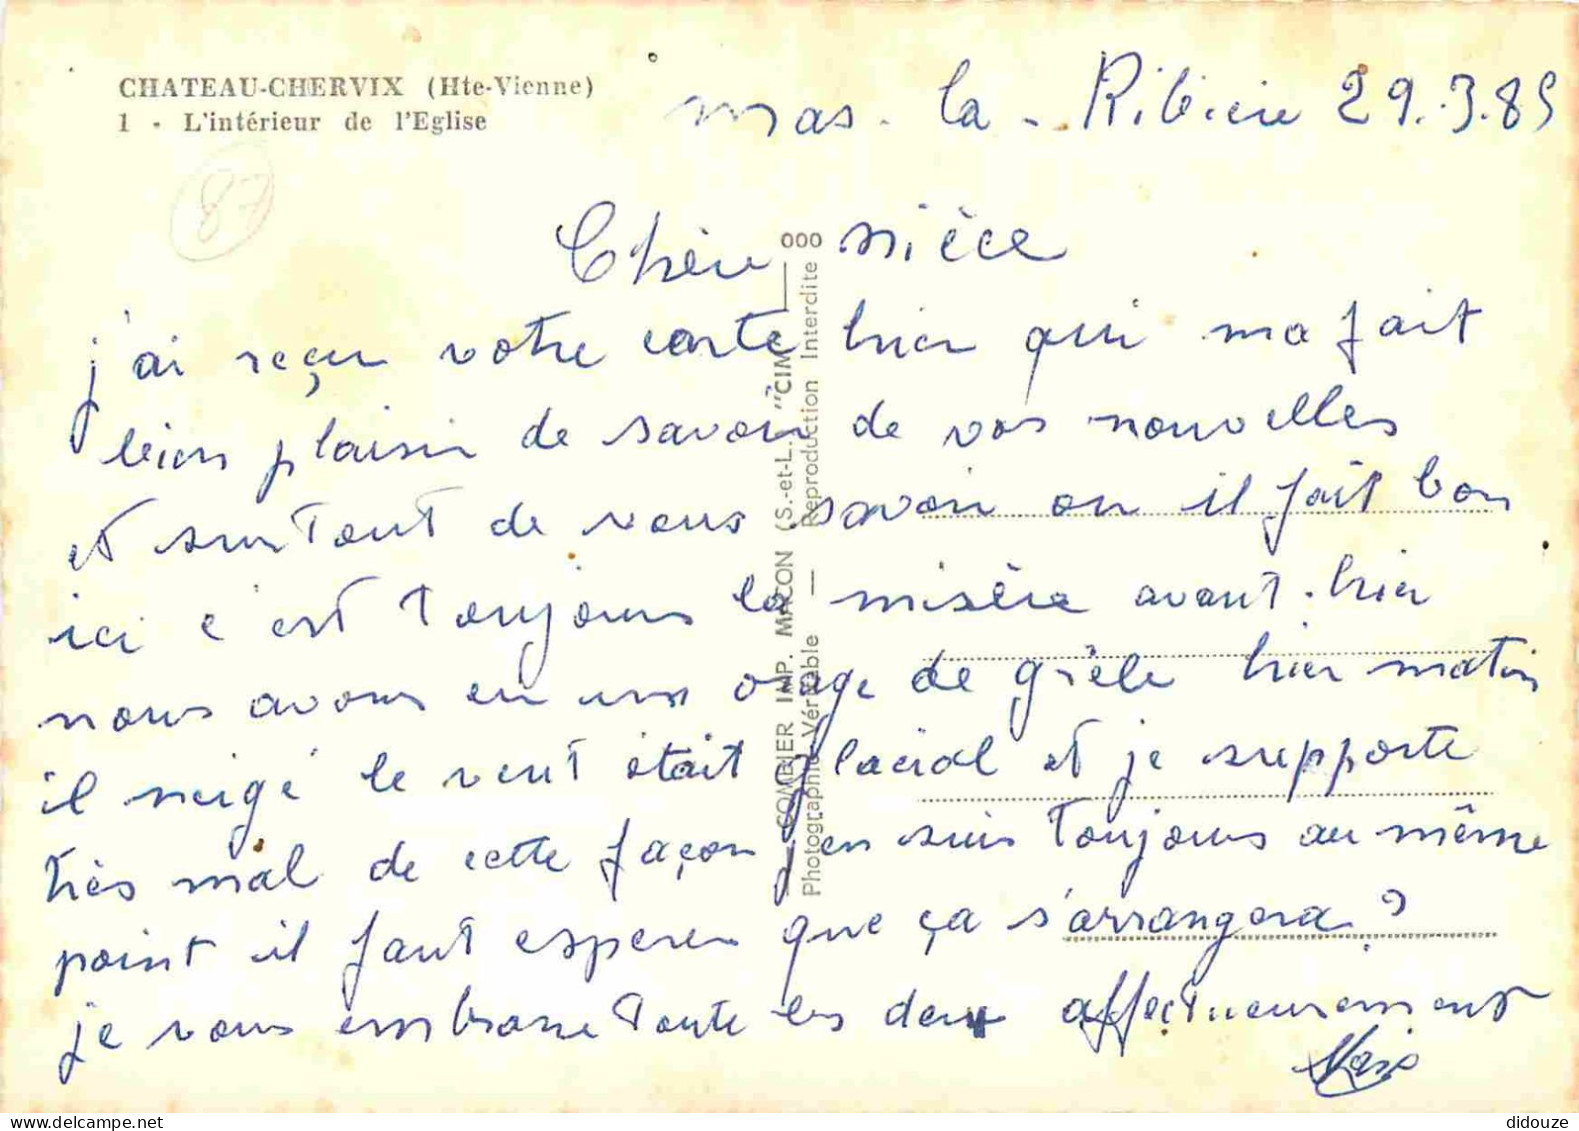 CHATEAU-CHERVIX (Hte-Vienne)
1 - L'intérieur de l'Eglise
mas - la - Ribière 29.3.85
87
Chère nièce
j'ai reçu votre carte hier qui ma fait
bien plaisir de savoir de vos nouvelles
et surtout de vous savoir ou il fait bon
ici c'est toujours la misère avant-hier
nous avons eu un orage de grèle hier matin
il neigé le vent était glacial et je supporte
très mal de cette façon j'en suis toujours au même
point il faut esperer que ça s'arrangera?
je vous embrasse toute les deux affectueusement
COMBIER IMP. MACON (S.-et-L.) "CIM"
Photographie Véritable — Reproduction Interdite
didouze